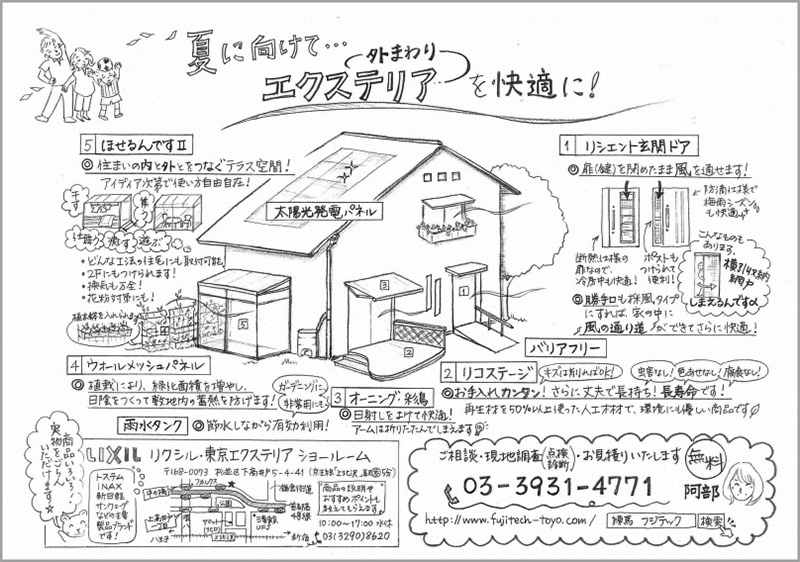 夏に向けて…
外まわり
エクステリアを快適に!
5 ほせるんですⅡ
◎ 住まいの内と外とをつなぐテラス空間!
アイディア次第で使い方自由自在!
干す
集う
仕切る 癒す 遊ぶ
・どんな工法の住宅にも取付可能
・2Fにもつけられます!
・換気も万全!
・花粉対策にも!
植木鉢を入れられる
太陽光発電パネル
1 リシェント玄関ドア
◎ 扉(鍵)を閉めたまま風を通せます!
防滴仕様で
梅雨シーズン
も快適
断熱仕様の
扉なので、
冷房中も快適!
ポストも
つけられて
便利!
こんなものも
あります。
横引き収納
網戸
しまえるんですα
◎ 勝手口も採風タイプ
にすれば、家の中に
風の通り道ができてさらに快適!
5
3
2
1
バリアフリー
4 ウォールメッシュパネル
◎ 植栽により、緑化面積を増やし、
日陰をつくって敷地内の蓄熱を防げます!
ガーデニングに、
非常用にも
雨水タンク ◎ 節水しながら有効利用!
3 オーニング 彩鳥
◎ 日射しをよけて快適!
アームは折りたたんでしまえます
2 リコステージ
キズは削ればOK!
虫害なし! 色あせなし! 腐食なし!
◎ お手入れカンタン! さらに丈夫で長持ち! 長寿命です!
再生材を50%以上使った人工木材で、環境にも優しい商品です
商品いろいろ
実物をごらん
いただけます!
トステム
INAX
新日軽
サンウエーブ
などの主要
製品ブランド
です!
LIXIL リクシル・東京エクステリア ショールーム
〒168-0073 杉並区下高井戸5-4-41
公園
至新宿
八王子
商品の説明や
おすすめポイントも
教えてもらえます。
10:00〜17:00 水休
03(3290)8620
ご相談・現地調査(点検診断)・お見積りいたします 無料
03-3931-4771 阿部
http://www.fujitech-toyo.com/ 練馬 フジテック 検索